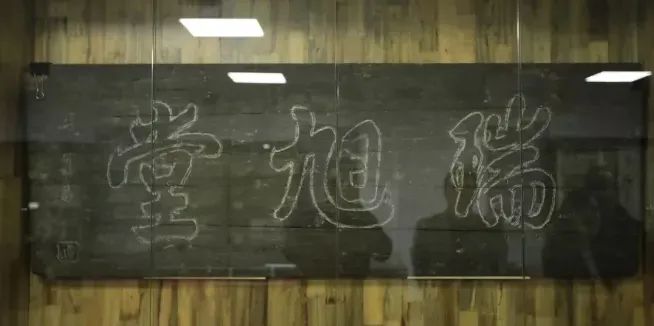 瑞旭堂